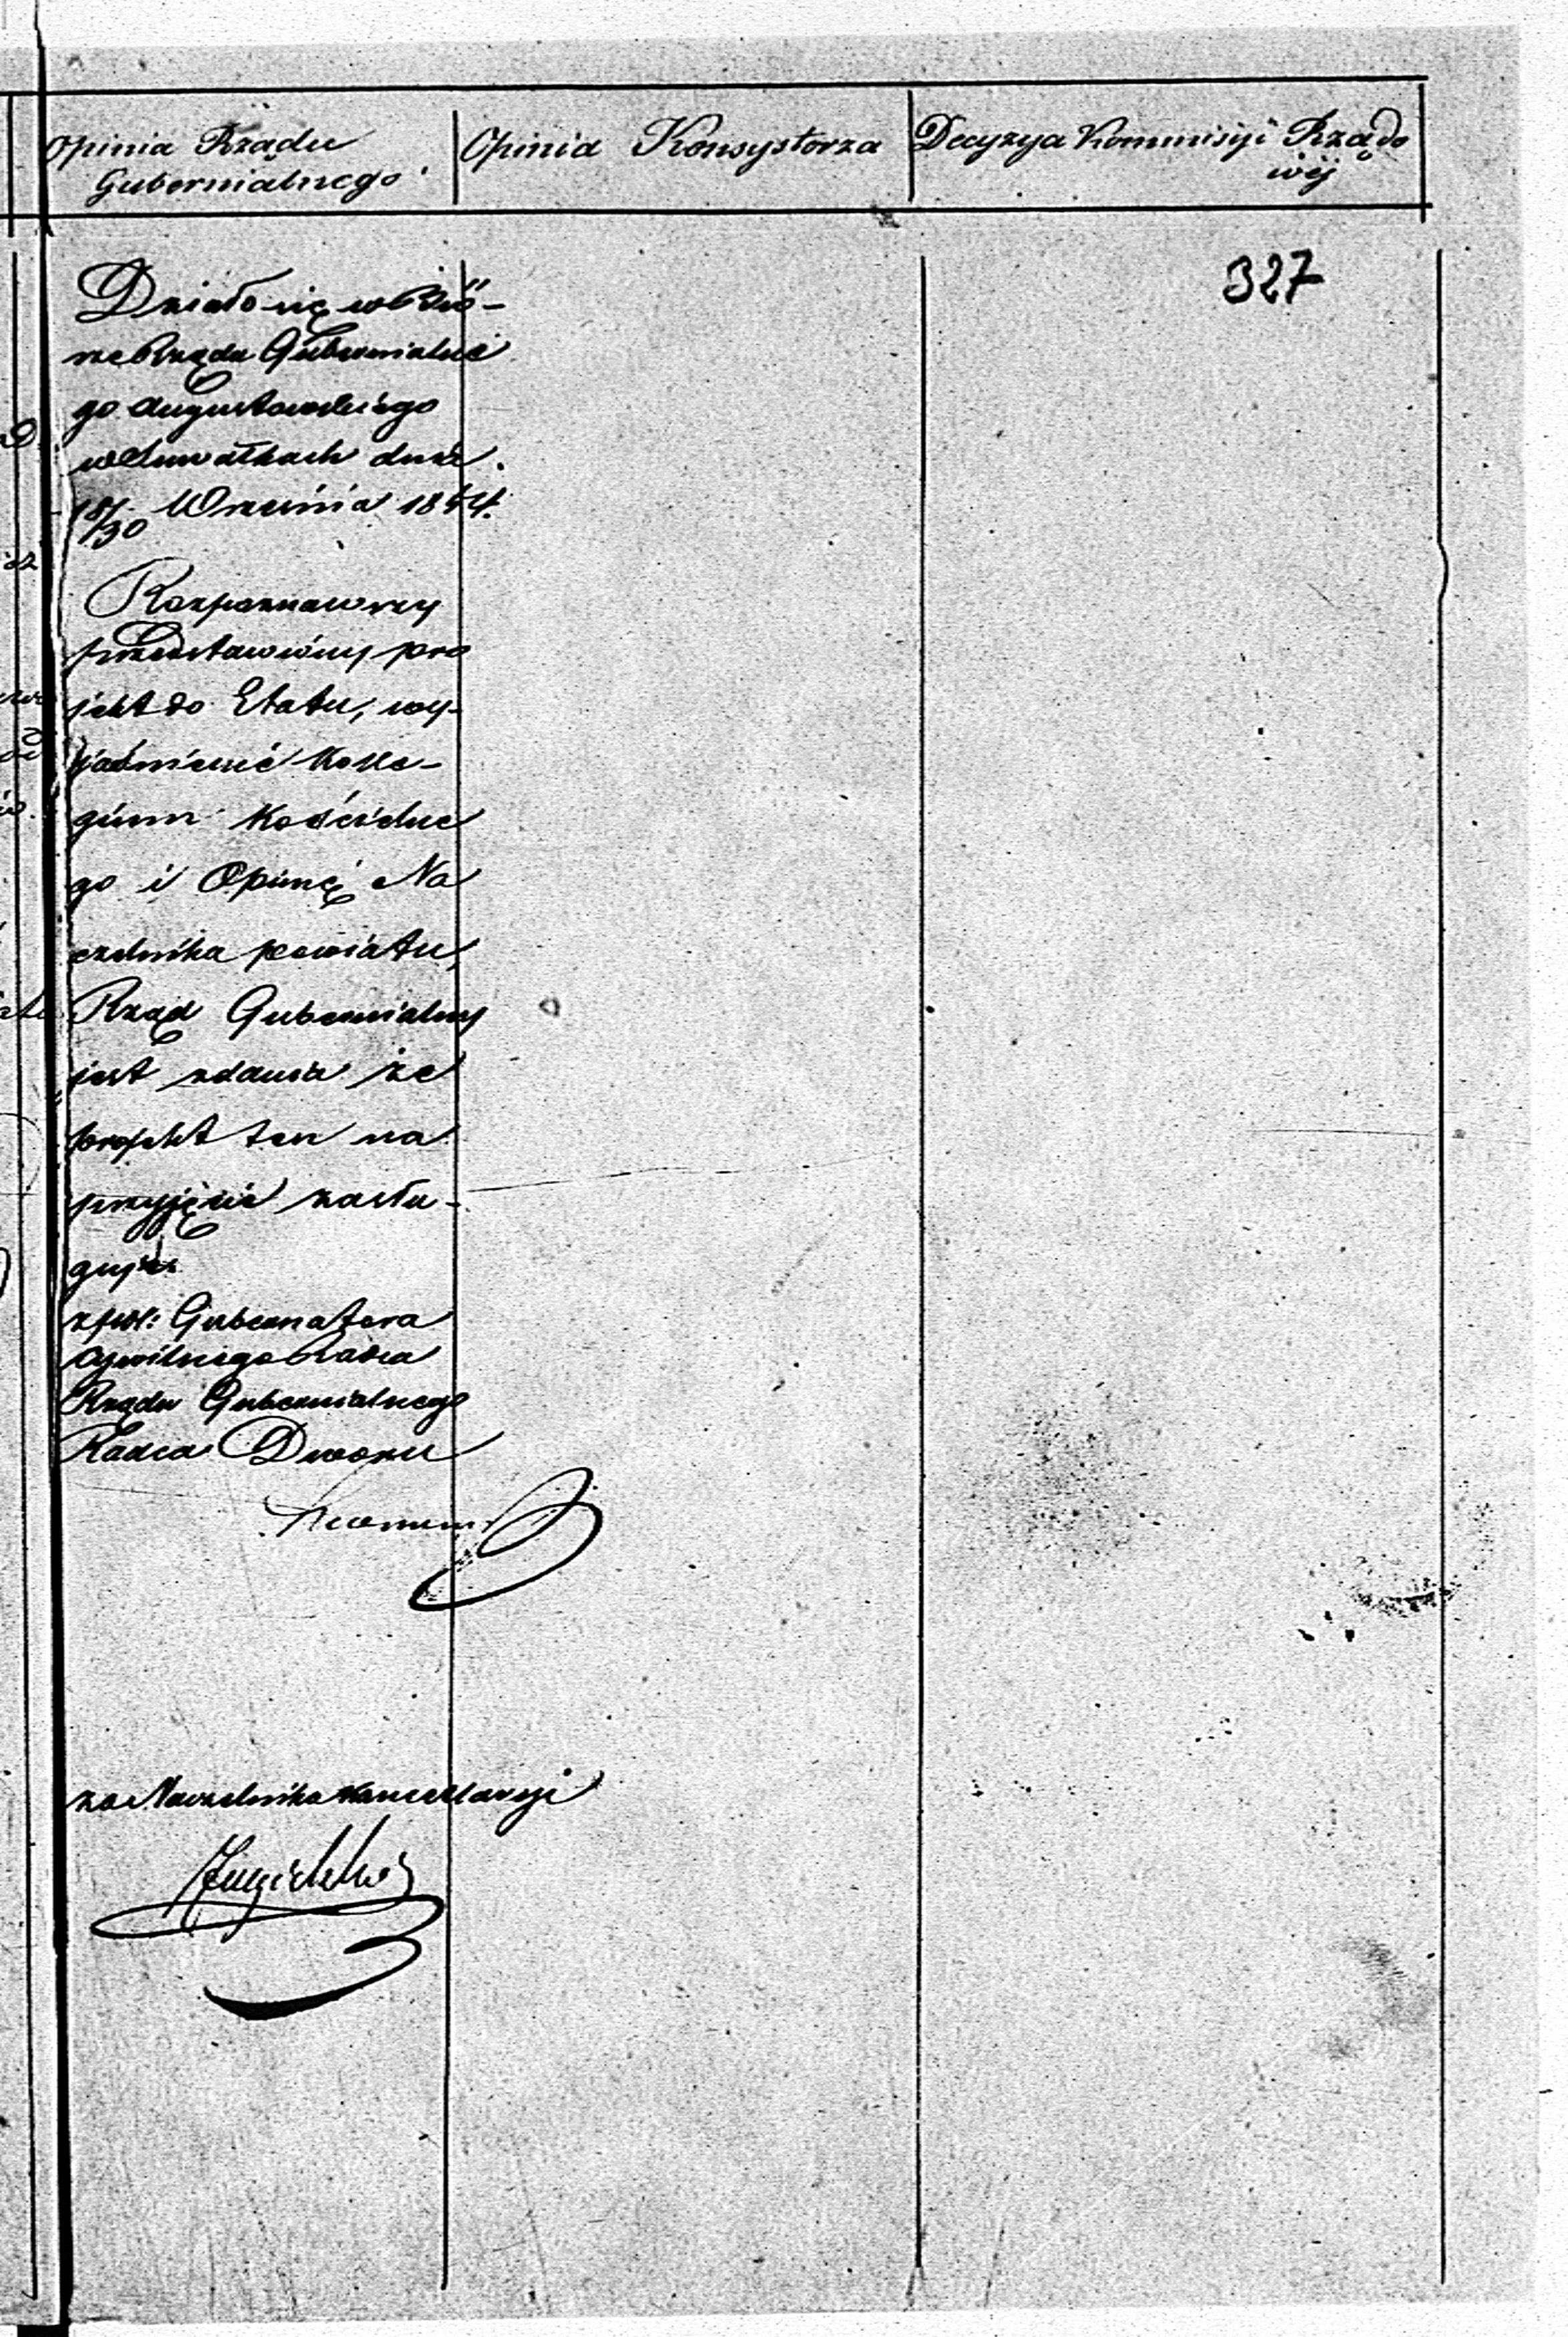 Opinia Rządu
Gubernialnego
Opinia Konsystorza
Decyzya Kommisyi Rządo
wéj
327
Działo się w Bió-
rze Rządu Gubernialne
go Augustowskiego
w Suwałkach dnia
18/30 Września 1844.
Rozpoznawszy
przedstawiony pro
jekt do Etatu, wy-
jaśnienie Kolle-
gium Kościelne
go i Opinię Na
czelnika powiatu,
Rząd Gubernialny
jest zdania że
projekt ten na
przyjęcie zasłu-
guje
Gubernatora
Cywilnego Radca
Rządu Gubernialnego
Radca Dworu
za Naczelnika Kancellaryi